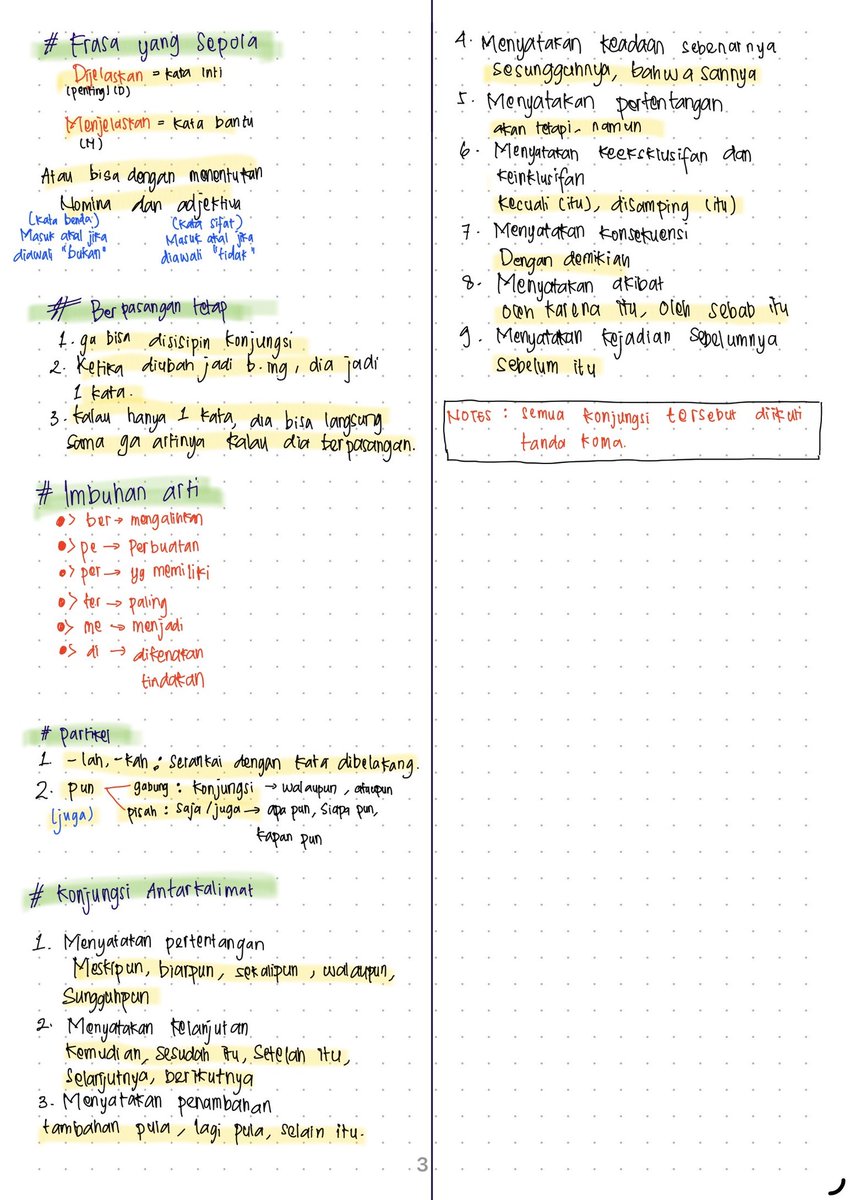 # Frasa yang Sepola
Dijelaskan = kata inti
(penting) (D)
Menjelaskan = kata bantu
(M)
Atau bisa dengan menentukan
Nomina dan adjektiva
(kata benda) (kata sifat)
Masuk akal jika Masuk akal jika
diawali "bukan" diawali "tidak"
# Berpasangan tetap
1. ga bisa disisipin konjungsi.
2. Ketika diubah jadi b.ing, dia jadi
1 kata.
3. kalau hanya 1 kata, dia bisa langsung
sama ga artinya kalau dia berpasangan.
# Imbuhan arti
•> ber → mengalihkan
•> pe → Perbuatan
•> per → yg memiliki
•> ter → paling
•> me → menjadi
•> di → dikenakan
tindakan
# Partikel
1. -lah, -kah : serankai dengan kata dibelakang.
2. pun gabung : konjungsi → walaupun, ataupun
(juga) pisah : saja/juga → apa pun, siapa pun,
kapan pun
# Konjungsi Antarkalimat
1. Menyatakan pertentangan
Meskipun, biarpun, sekalipun, walaupun,
Sungguhpun
2. Menyatakan kelanjutan
Kemudian, sesudah itu, setelah itu,
Selanjutnya, berikutnya
3. Menyatakan penambahan
tambahan pula, lagi pula, selain itu.
3
4. Menyatakan keadaan sebenarnya
Sesungguhnya, bahwasannya
5. Menyatakan pertentangan
akan tetapi, namun
6. Menyatakan keeksklusifan dan
keinklusifan
Kecuali (itu), disamping (itu)
7. Menyatakan konsekuensi
Dengan demikian
8. Menyatakan akibat
Oleh karena itu, Oleh sebab itu
9. Menyatakan kejadian sebelumnya
Sebelum itu
NOTES : semua konjungsi tersebut diikuti
tanda koma.